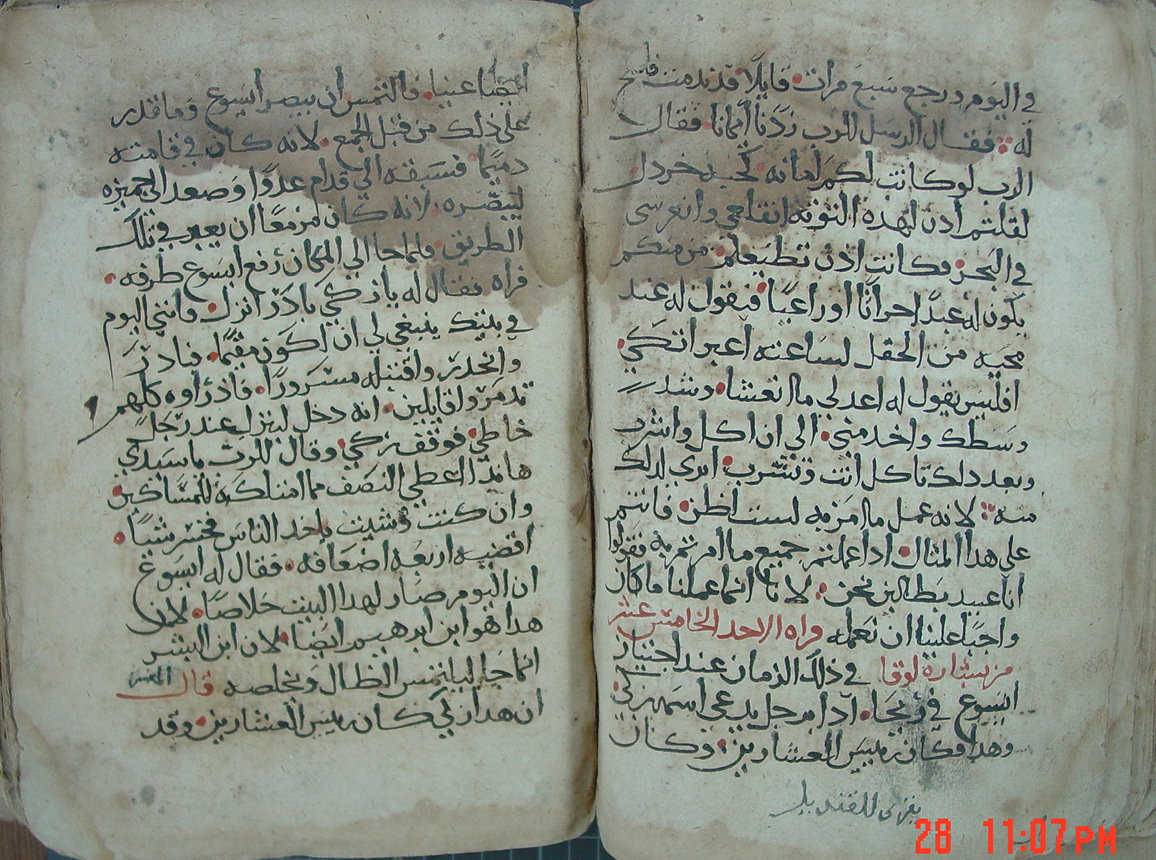 في اليوم ورجع سبع مرات قايلًا قد ندمت فاسمح
له فقال الرسل للرب زدنا أمانا فقال
الرب لو كانت لكم امانه كحبه خردل
لقلتم أدن لهده التوته انقلعي وانغرسي
في البحر وكانت اذن تطيعكم من منكم
يكون له عبدًا حراثًا او راعيًا فيقول له عند
مجيه من الحقل لساعته اعبر اتكي
افليس يقول له اعد لي ما اتعشا وشد
وسطك واخدمني الي ان اكل واشرب
وبعد دلك تاكل انت وتشرب اتري لدلك
منه لانه عمل ما امر به لست اظن فانتم
علي هدا المثال ادا عملتم جميع ما امرتم به فقولوا
انا عبيد بطالين نحن لانا انما عملنا ما كان
واجبًا علينا ان نعمله قراه الاحد الخامس عشر
من بشاره لوقا في ذلك الزمان عند اجتياز
ايسوع في ريحا اذا برجل يدعي اسمه زكي
وهدا وكان رييس العشارين وكان
يقرى للقنديل
ايضًا غنيا فالتمس ان يبصر ايسوع وما قدر
علي ذلك من قبل الجمع لانه كان في قامته
دميمًا فسبقه الي قدام عدوًا وصعد الي جميزه
ليبصره لانه كان مزمعًا ان يعبر في تلك
الطريق ولما جا الي المكان رفع ايسوع طرفه
فراه فقال له يا زكي بادر انزل فانني اليوم
في بيتك ينبغي لي ان اكون مقيمًا فبادر
وانحدر واقتبله مسرورًا فاذ راوه كلهم
تدمروا قايلين انه دخل لينزل عند رجل
خاطي فوقف زكي وقال للرب يا سيدي
هاندا اعطي النصف مما امتلكه للمساكين
وان كنت وشيت باحد الناس فخسر شيًا
اقضيه اربعه اضعافه فقال له ايسوع
ان اليوم صار لهدا البيت خلاصًا لان
هدا هو ابن ابرهيم ايضًا لان ابن البشر
انما جا ليلتمس الظال ويخلصه قال المفسر
ان هدا زكي كان رييس العشارين وقد
28 11:07 PM